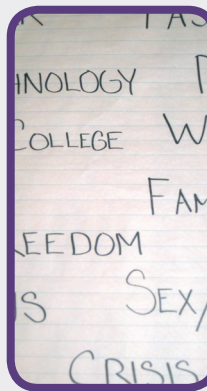 PAS
HNOLOGY
COLLEGE W
FAM
EEDOM
S SEX/
CRISIS